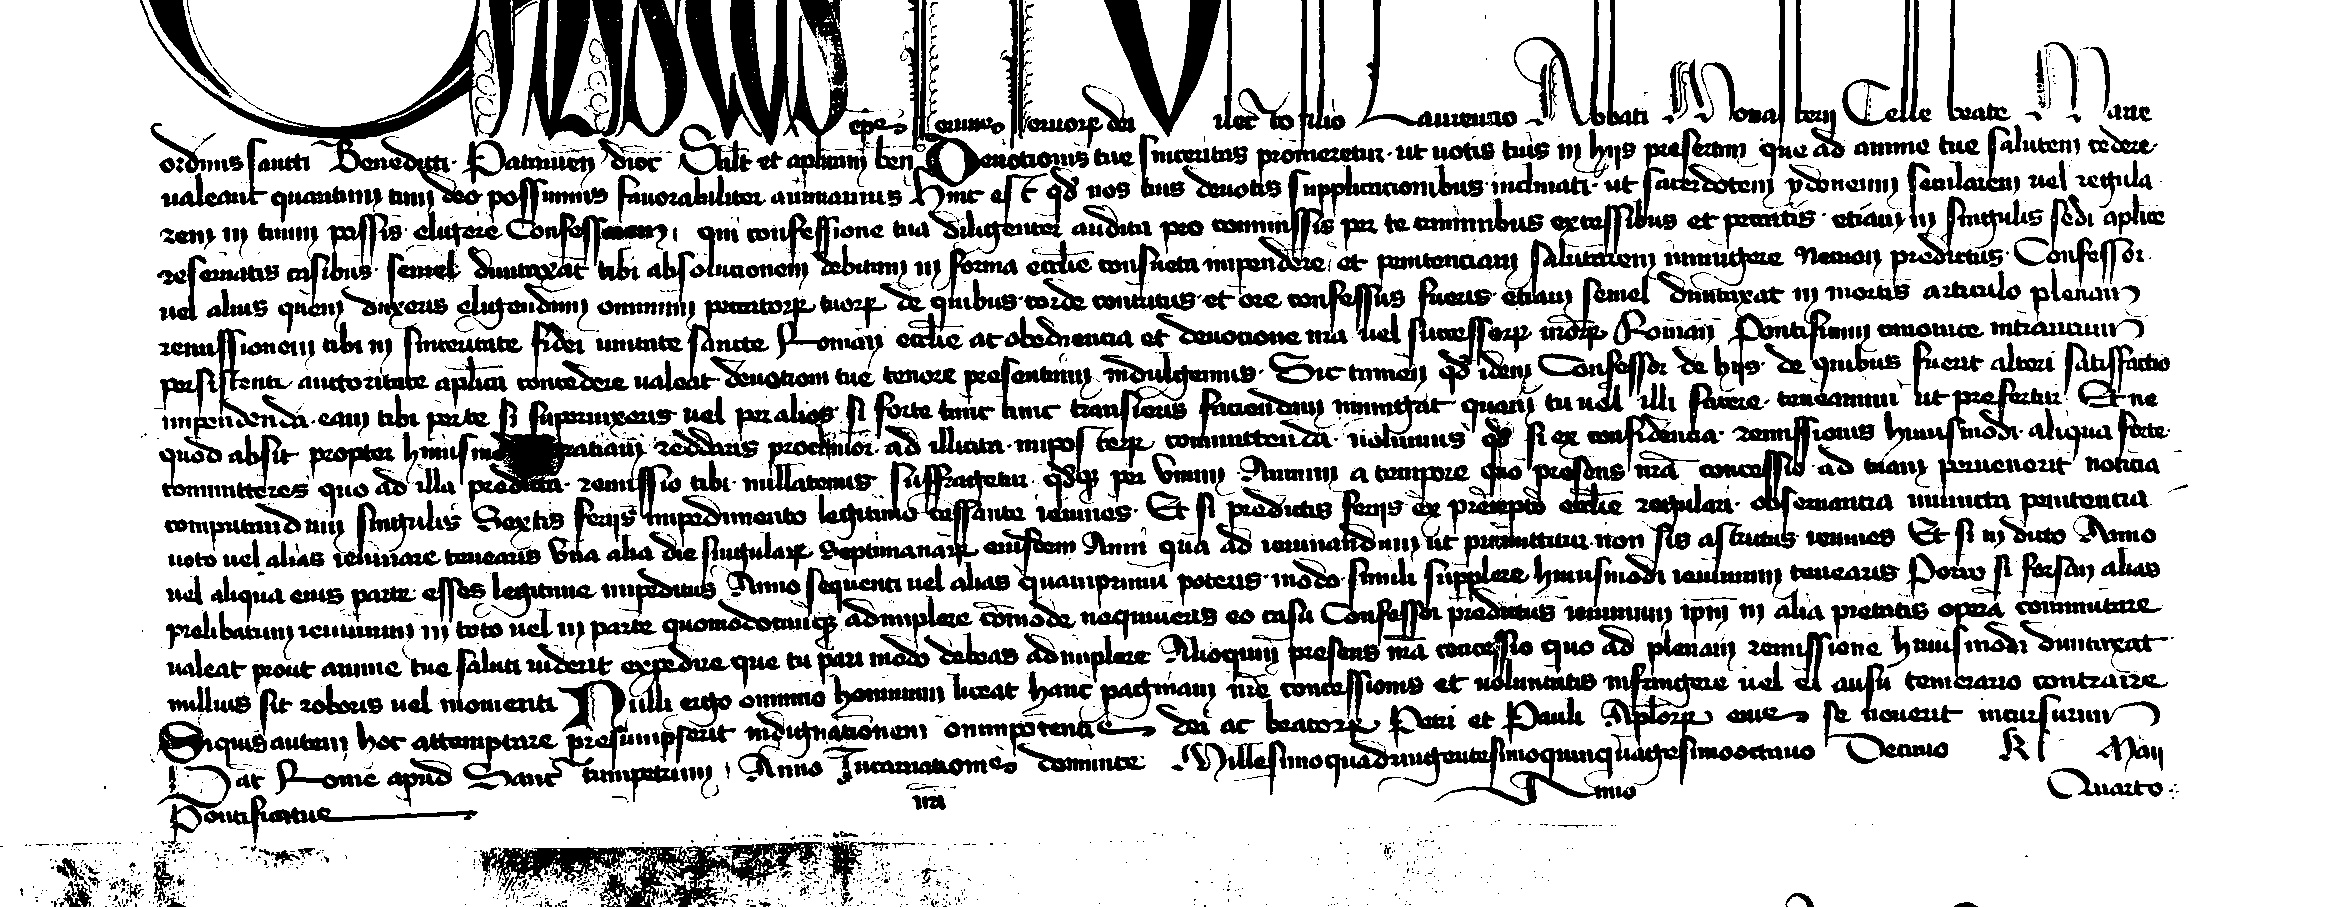 Calistus epc seruus seruorꝝ dei Dilecto filio Laurencio Abbati Monasterij Celle beate Marie
ordinis sancti Benedicti Patauien dioc Salt et aplicam ben Deuotionis tue sinceritas promeretur ut uotis tuis in hijs presertim que ad anime tue salutem cedere
ualeant quantum cum deo possumus fauorabiliter annuamus Hinc est qd nos tuis deuotis supplicacionibus inclinati ut sacerdotem ydoneum secularem uel regula
rem in tuum possis eligere Confessorem qui confessione tua diligenter audita pro commissis per te criminibus excessibus et peccatis etiam in singulis sedi aplice
reseruatis casibus semel dumtaxat tibi absolutionem debitam in forma ecclie consueta impendere et penitenciam salutarem iniungere Necnon predictus Confessor
uel alius quem duxeris eligendum omnium peccatorꝝ tuorꝝ de quibus corde contritus et ore confessus fueris etiam semel dumtaxat in mortis articulo plenam
remissionem tibi in sinceritate fidei unitate sancte Roman ecclie ac obediencia et deuocione nra uel successorꝝ nrorꝝ Roman Pontificum canonice intrancium
persistenti auctoritate aplica concedere ualeat deuotioni tue tenore presentium indulgemus Sic tamen qd idem Confessor de hijs de quibus fuerit alteri satisfactio
impendenda eam tibi per te si superuixeris uel per alios si forte tunc transieris faciendam iniungat quam tu uel illi facere teneamini ut prefertur Et ne
quod absit propter huiusmodi gratiam reddaris procliuior ad illicita imposterꝝ committenda uolumus qd si ex confidencia remissionis huiusmodi aliqua forte
committeres quo ad illa predicta remissio tibi nullatenus suffragetur qdqꝫ per Vnum Annum a tempore quo presens nra concessio ad tuam peruenerit noticia
computandum singulis Sextis ferijs impedimento legitimo cessante ieiunes Et si predictis ferijs ex precepto ecclie regulari obseruancia iniuncta penitencia
uoto uel alias ieiunare tenearis Vna alia die singularꝝ Septimanarꝝ eiusdem Anni qua ad ieiunandum ut premittitur non sis astrictus ieiunes Et si in dicto Anno
uel aliqua eius parte esses legitime impeditus Anno sequenti uel alias quamprimum poteris modo simili supplere huiusmodi ieiunium tenearis Porro si forsan alias
prelibatum ieiunium in toto uel in parte quomodocunqꝫ adimplere comode nequiueris eo casu Confessor predictus ieiunium ipm in alia pietatis opera commutare
ualeat prout anime tue saluti uiderit expedire que tu pari modo debeas adimplere Alioquin presens nra concessio quo ad plenam remissione huiusmodi dumtaxat
nullius sit roboris uel momenti Nulli ergo omnino hominum liceat hanc paginam nre concessionis et uoluntatis infringere uel ei ausu temerario contraire
Siquis autem hoc attemptare presumpserit indignationem omnipotentis dei ac beatorꝝ Petri et Pauli Aplorꝝ eius se nouerit incursurum
Dat Rome apud Sanctumpetrum Anno Incarnationis dominice Millesimoquadringentesimoquinquagesimooctauo Decimo Kl Maij
Pontificatus nri Anno Quarto